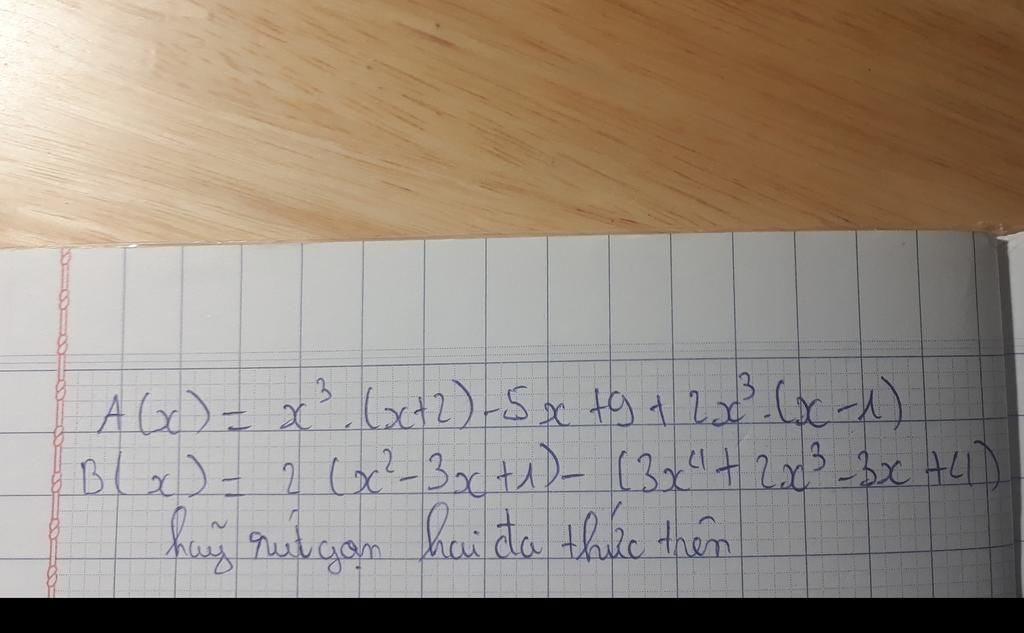 A(x) = x³ . (x+2) - 5x + 9 + 2x³ . (x - 1)
B(x) = 2 (x² - 3x + 1) - (3x⁴ + 2x³ - 3x + 4)
hãy rút gọn hai đa thức trên